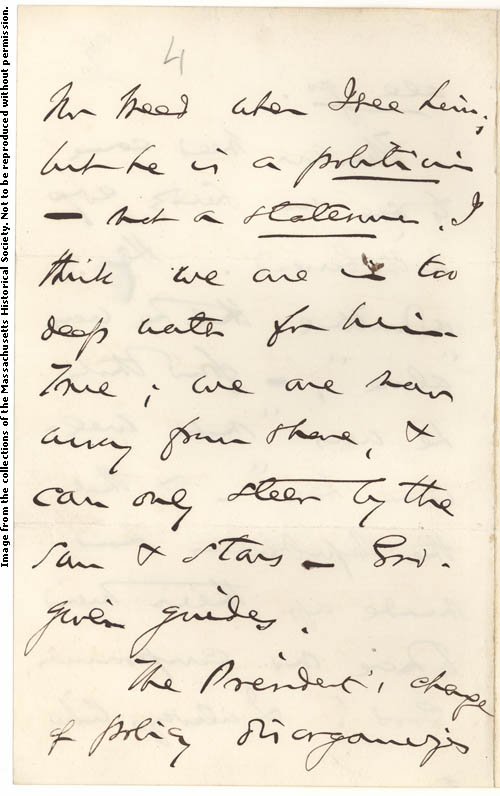 Image from the collections of the Massachusetts Historical Society. Not to be reproduced without permission.
4
Mr Weed when I see him;
but he is a politician
— not a statesman. I
think we are in too
deep water for him
True; we are now
away from shore, &
can only steer by the
sun & stars — God-
given guides.
The President's change
of policy disorganizes